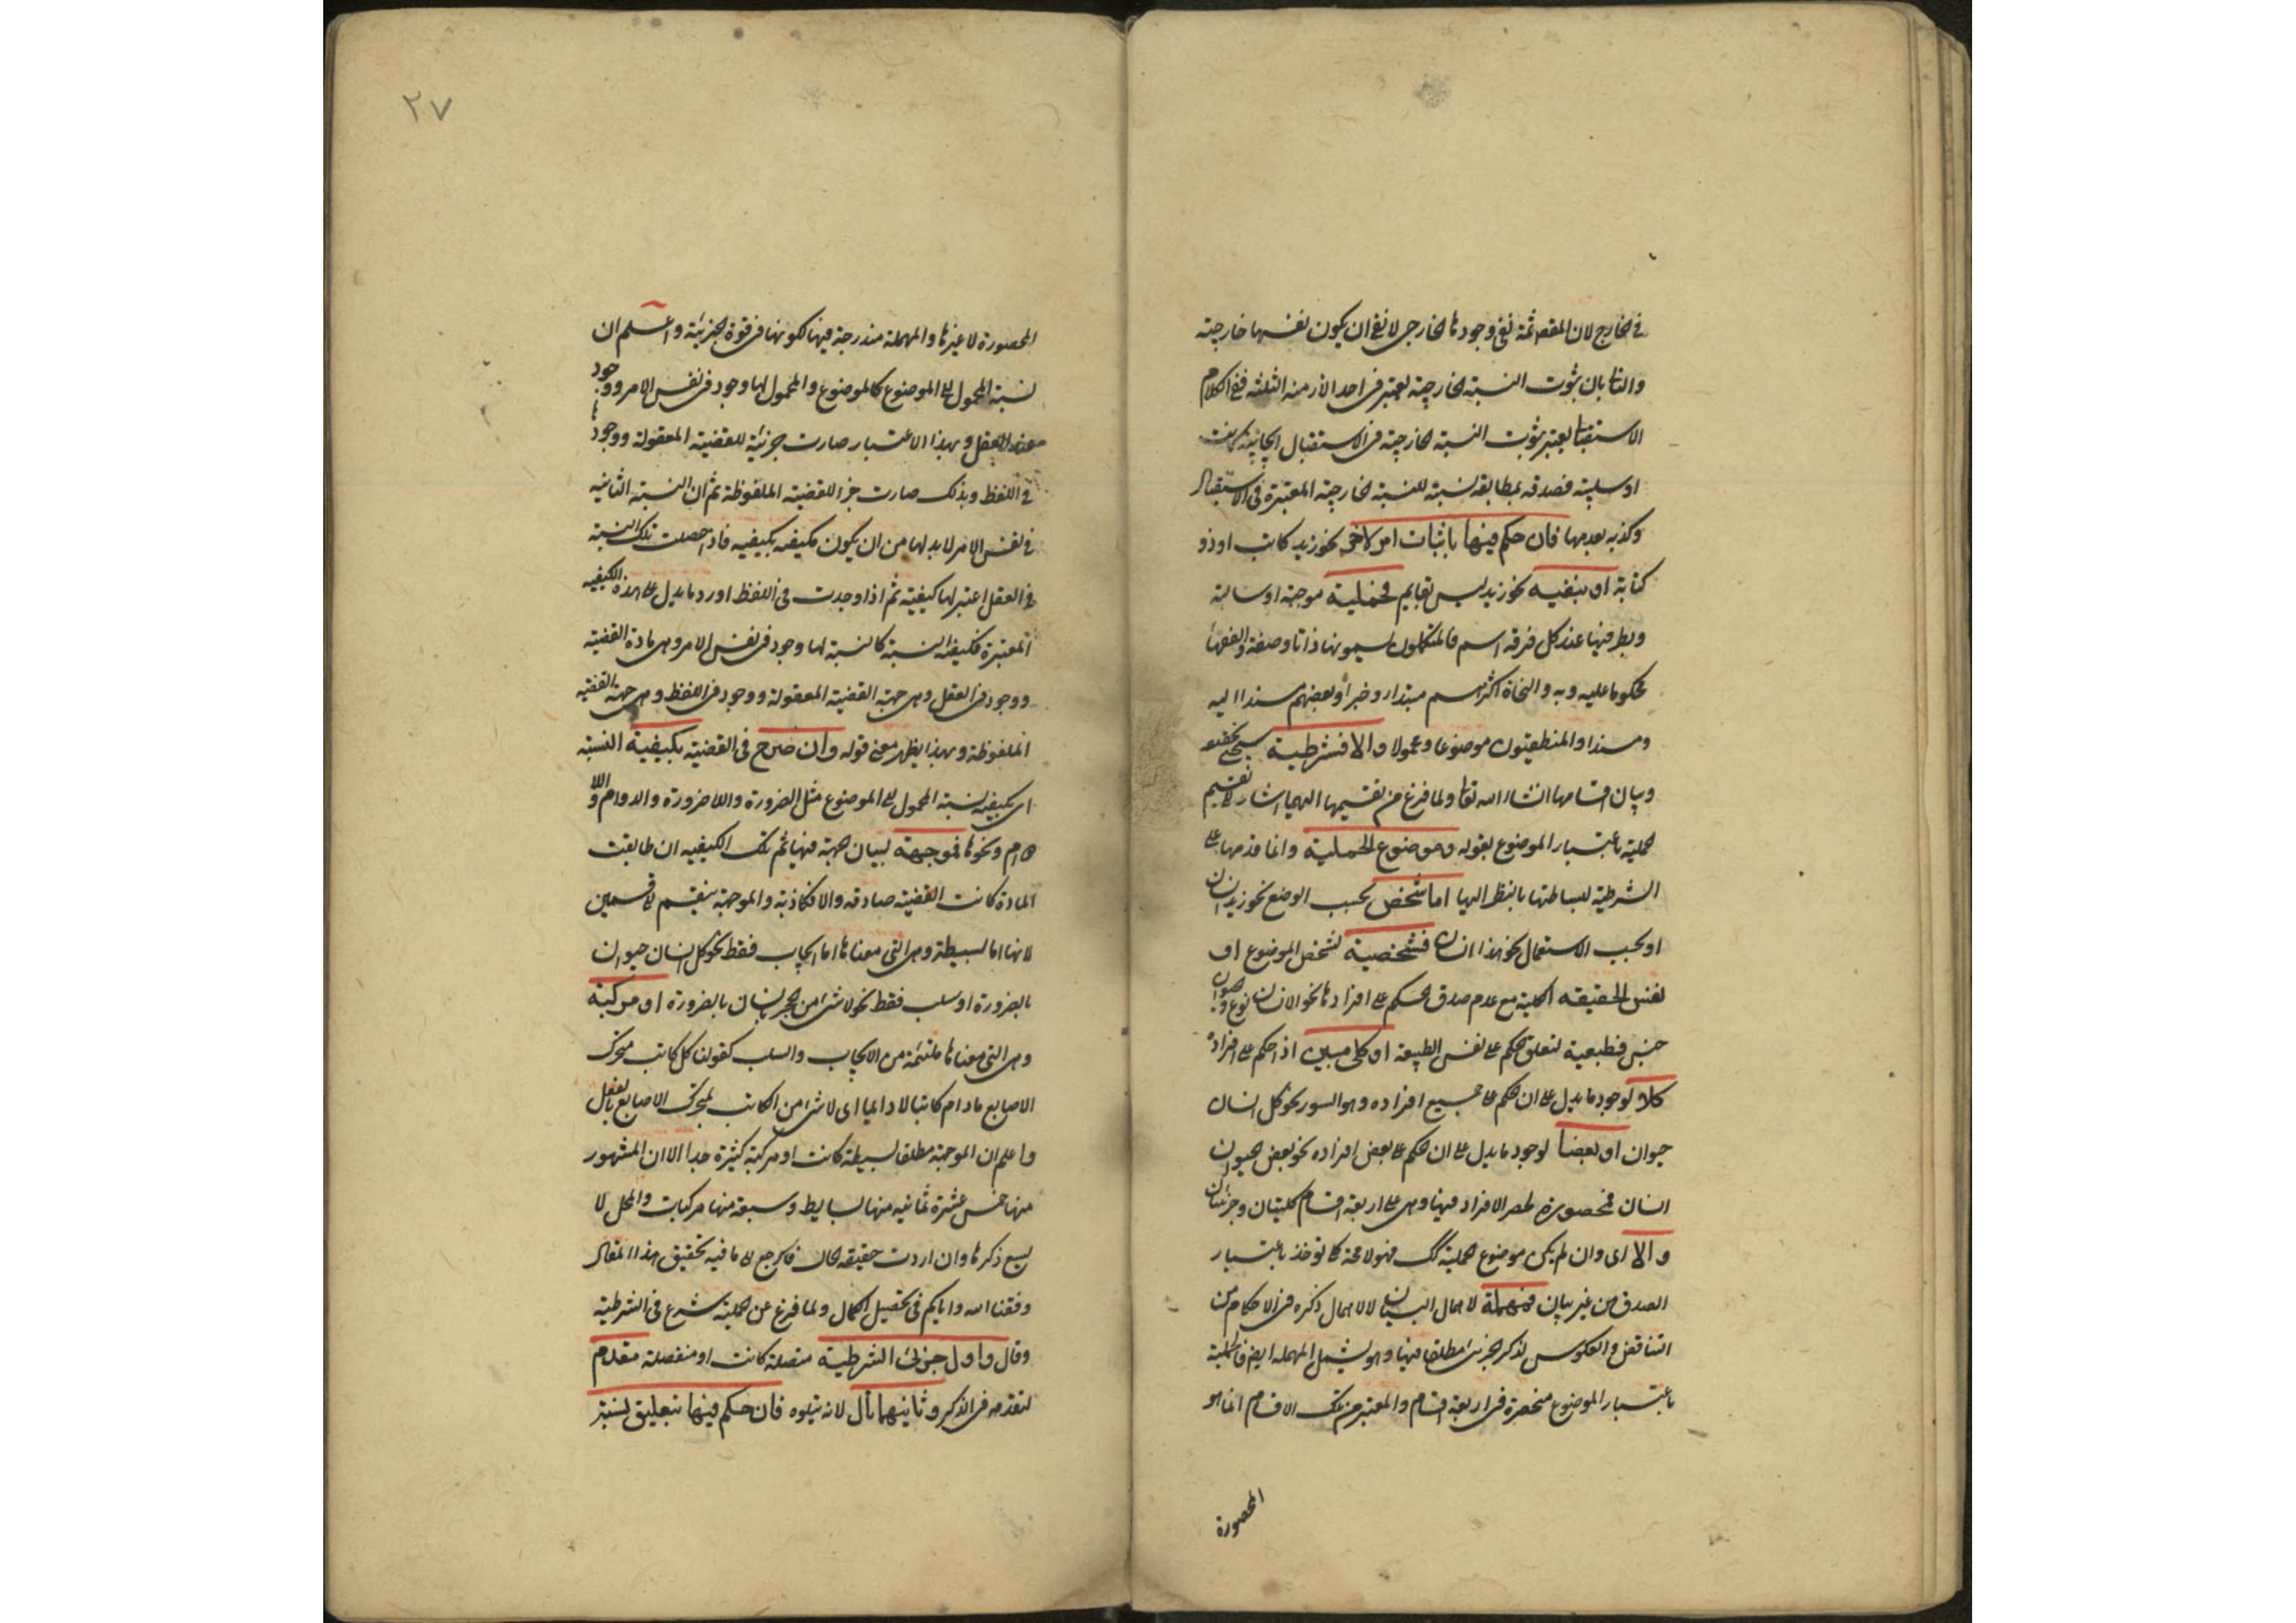 في الخارج لان المقصد ثمة نفي وجودها الخارجي لا نفي ان يكون نفسها خارجية
والثا بان ثبوت النسبة الخارجية يعتبر في احد الازمنة الثلثة ففي الكلام
الاستقبا يعتبر ثبوت النسبة الخارجية في الاستقبال ايجابية كانت
او سلبية فصدقه بمطابقة نسبته للنسبة الخارجية المعتبرة في الاستقبال
وكذبه بعدمها فان حكم فيها باثبات امر لاخر نحو زيد كاتب او ذو
كتابة او بنفيه نحو زيد ليس بقايم فحملية موجبة او سالبة
وبطرفيها عند كل فرقة اسم فالمتكلمون يسمونها ذاتا وصفة والفقها
محكوما عليه وبه والنحاة اكثرهم مبتداء وخبرا وبعضهم مسندا اليه
ومسندا والمنطقيون موضوعا ومحمولا والا فشرطية سيجئ تحقيقه
وبيان اقسامها انشاء الله تعا ولما فرغ من تقسيمها اليهما اشار الى تقسيم
الحملية باعتبار الموضوع بقوله وموضوع الحملية وانما قدمها على
الشرطية لبساطتها بالنظر اليها اما شخص بحسب الوضع نحو زيد انسان
او بحسب الاستعمال نحو هذا انسان فشخصية لشخص الموضوع او
نفس الحقيقة الكلية مع عدم صدق الحكم على افرادها نحو الانسان نوع والحيوان
جنس فطبعية لتعلق الحكم على نفس الطبيعة او كلي مبين اذا حكم على افراده
كلا لوجود ما يدل على ان الحكم على جميع افراده وهو السور نحو كل انسان
حيوان او بعضا لوجود ما يدل على ان الحكم على بعض افراده نحو بعض الحيوان
انسان فمحصورة لحصر الافراد فيها وهي على اربعة اقسام كليتان وجزئيتان
والا اى وان لم يكن موضوع الحملية كك فهو لا محة كا تؤخذ باعتبار
الصدق من غير بيان فمهملة لاهمال البيان لا لاهمال ذكره في الاحكام من
التناقض والعكوس لذكر الجزئي مطلقا فيها وهو يشمل المهملة ايض فالحملية
باعتبار الموضوع منحصرة في اربعة اقسام والمعتبر من تلك الاقسام انما هو
المحصورة
٢٧
المحصورة لا غيرها والمهملة مندرجة فيها لكونها في قوة الجزئية واعلم ان
نسبة المحمول الى الموضوع كالموضوع والمحمول لها وجود في نفس الامر ووجود
عند العقل وبهذا الاعتبار صارت جزئية للقضية المعقولة ووجود
في اللفظ وبذلك صارت جزا للقضية الملفوظة ثم ان النسبة الثانية
في نفس الامر لابد لها من ان يكون مكيفة بكيفية فاذا حصلت تلك النسبة
في العقل اعتبر لها كيفية ثم اذا وجدت في اللفظ اورد ما يدل على هذه الكيفية
المعتبرة فكيفية النسبة كالنسبة لها وجود في نفس الامر وهي مادة القضية
ووجود في العقل وهي جهة القضية المعقولة ووجود في اللفظ وهي جهة القضية
الملفوظة وبهذا يظهر معنى قوله وان صرح في القضية بكيفية النسبة
اى بكيفية نسبة المحمول الى الموضوع مثل الضرورة واللاضرورة والدوام واللا
دوام ونحوها فموجهة لبيان الجهة فيها ثم تلك الكيفية ان طابقت
المادة كانت القضية صادقة والا فكاذبة والموجهة ينقسم الى قسمين
لانها اما بسيطة وهي التي معناها اما ايجاب فقط نحو كل انسان حيوان
بالضرورة او سلب فقط نحو لا شئ من الحجر بانسان بالضرورة او مركبة
وهي التي معناها ملتئمة من الايجاب والسلب كقولنا كل كاتب متحرك
الاصابع مادام كاتبا لا دايما اى لا شئ من الكاتب بمتحرك الاصابع بالفعل
واعلم ان الموجهة مطلقا بسيطة كانت او مركبة كثيرة جدا الا ان المشهور
منها خمس عشرة ثمانية منها بسايط وسبعة منها مركبات والمحل لا
يسع ذكرها وان اردت حقيقة الحال فارجع الى ما فيه تحقيق هذا المقال
وفقنا الله واياكم في تحصيل الكمال ولما فرغ عن الحملية شرع في الشرطية
وقال واول جزئى الشرطية متصلة كانت او منفصلة مقدم
لتقدمه في الذكر وثانيهما تال لانه يتلوه فان حكم فيها بتعليق نسبة